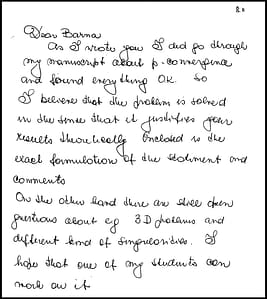 Dear Barna
As I wrote you I did go through
my manuscript about p-convergence
and found everything OK. So
I believe that the problem is solved
in the sense that it justifies your
results theoretically Enclosed is the
exact formulation of the statment and
comments
On the other hand there are still open
questions about eg 3D problems and
different kind of singularities. I
hope that one of my students can
work on it